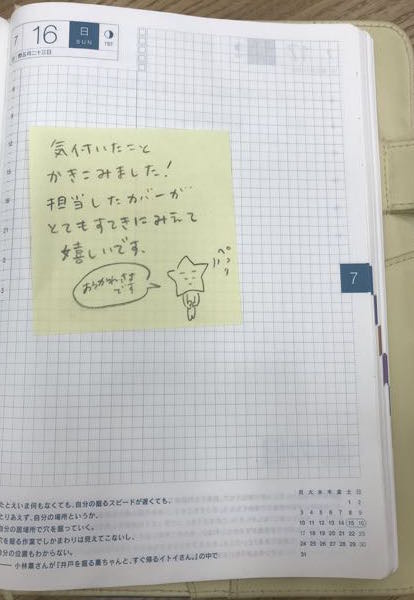 7 16 日
SUN
197
気付いたこと
かきこみました!
担当したカバーが
とてもすてきにみえて
嬉しいです。
おつかれさま
です
ペコリ
7
たとえいま何もなくても、自分の掘るスピードが遅くても、
とりあえず、自分の場所というか、
自分の居場所で穴を掘っていく。
穴を掘る作業でしかまわりは見えてこないし、
自分の位置もわからない。
── 小林薫さんが『井戸を掘る薫ちゃんと、すぐ帰るイトイさん。』の中で
月 火 水 木 金 土 日
1 2
3 4 5 6 7 8 9
10 11 12 13 14 15 16
17 18 19 20 21 22 23
24 25 26 27 28 29 30
31